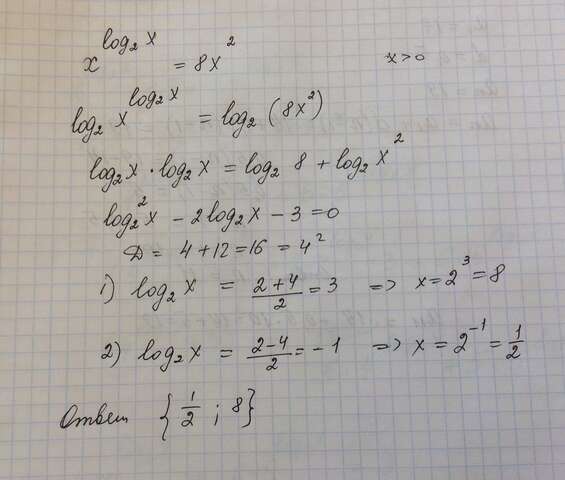 x^{log₂ x} = 8x²   x>0
log₂ x^{log₂ x} = log₂ (8x²)
log₂ x · log₂ x = log₂ 8 + log₂ x²
log₂² x − 2 log₂ x − 3 = 0
D = 4 + 12 = 16 = 4²
1) log₂ x = (2+4)/2 = 3 => x = 2³ = 8
2) log₂ x = (2−4)/2 = −1 => x = 2⁻¹ = 1/2
Ответ {1/2 ; 8}